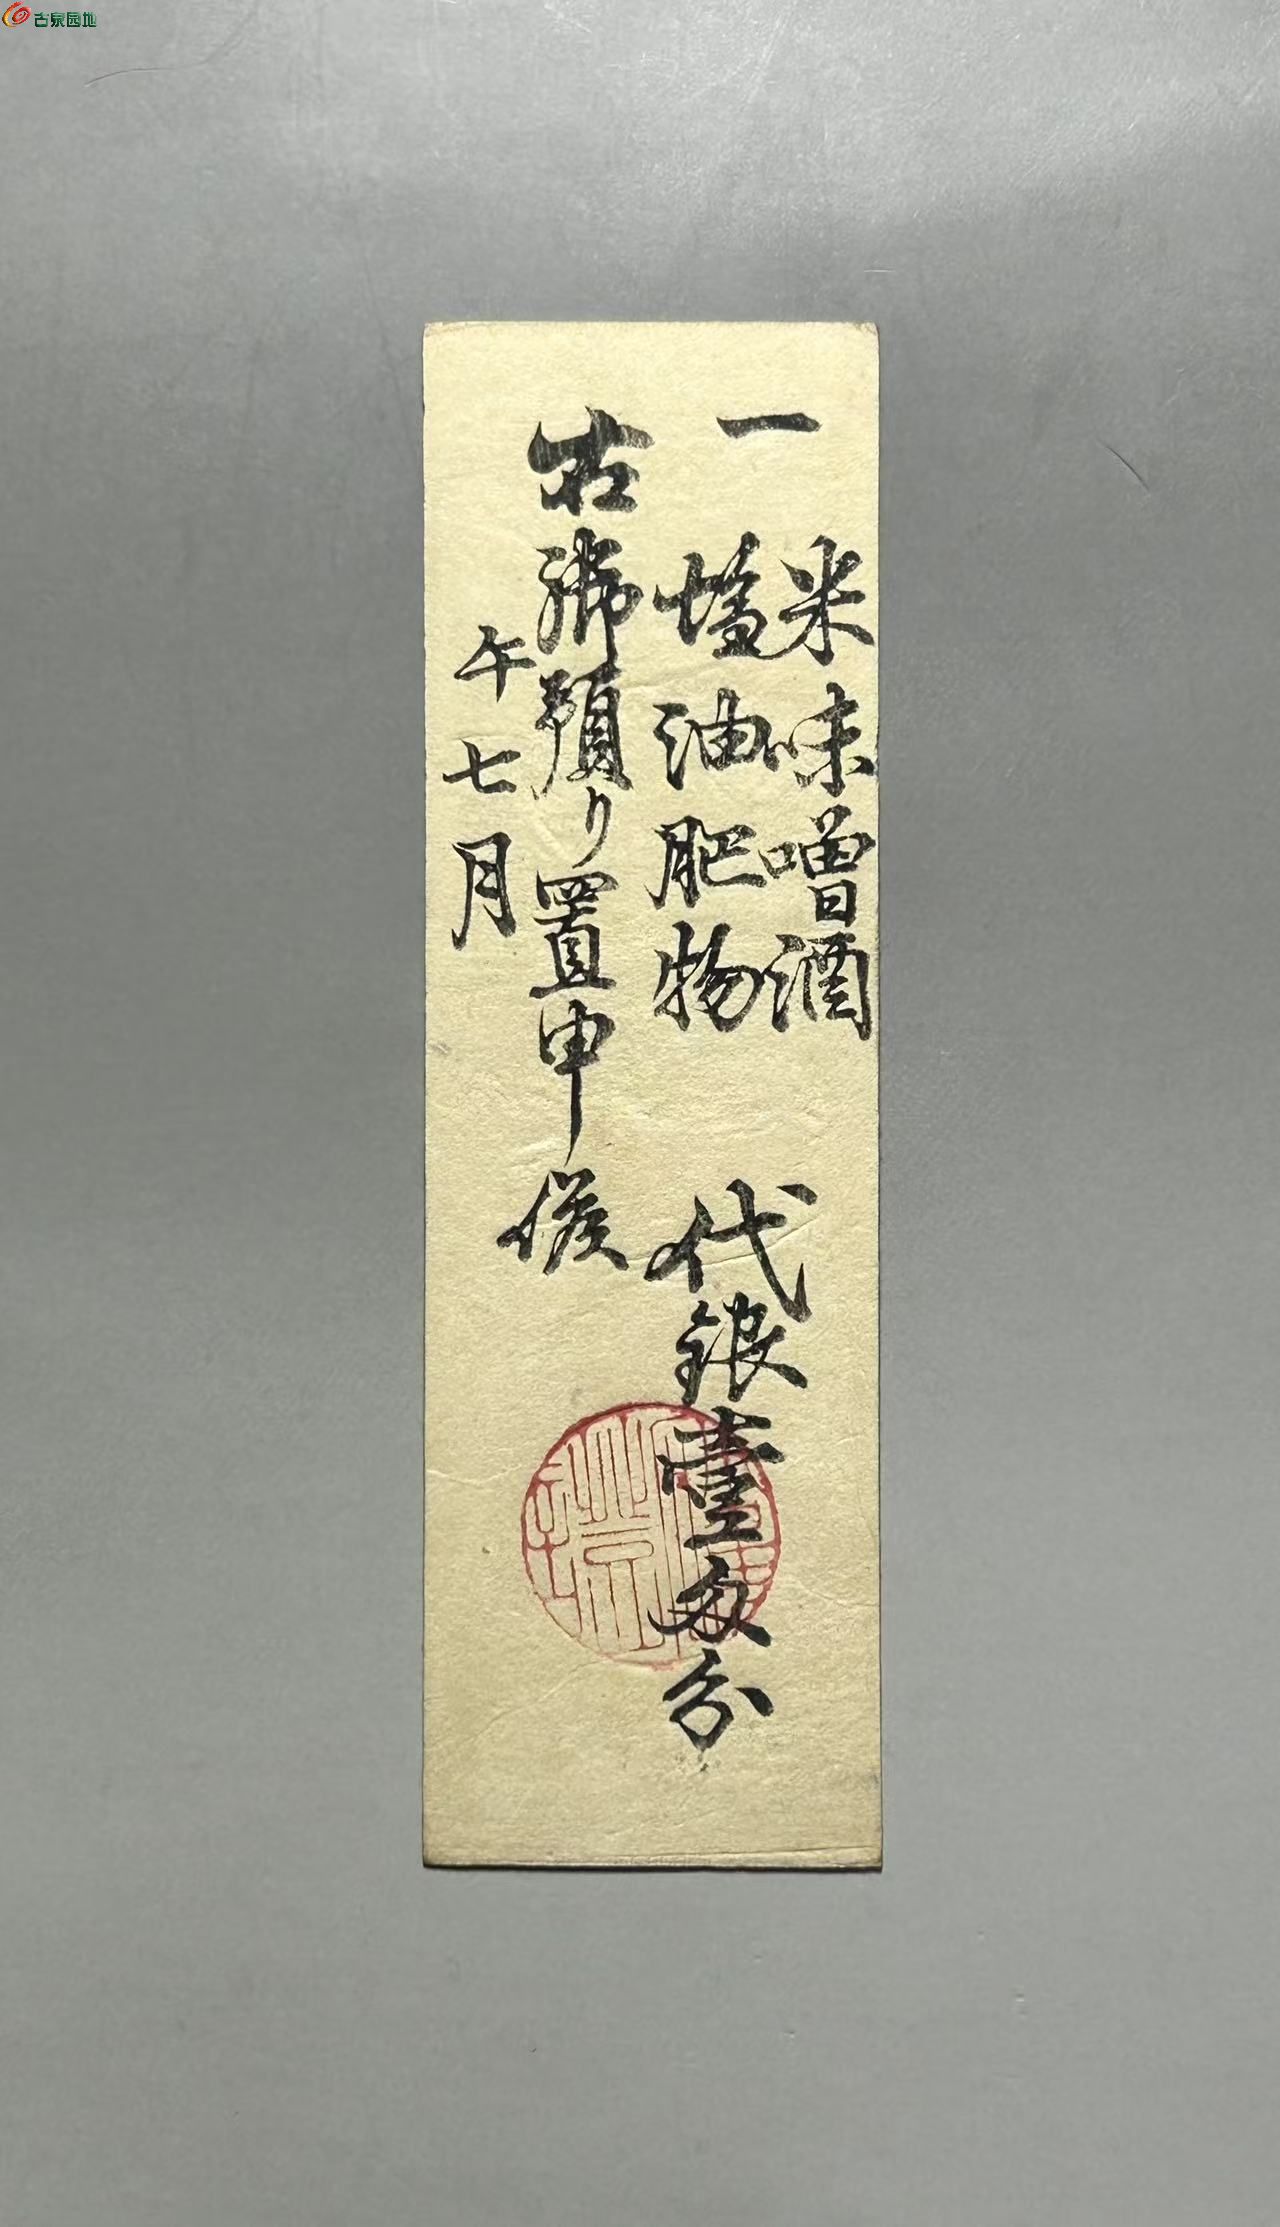 古泉园地
一
米味噌酒
塩油肥物
代銀壹匁分
右御預り置申候
午七月